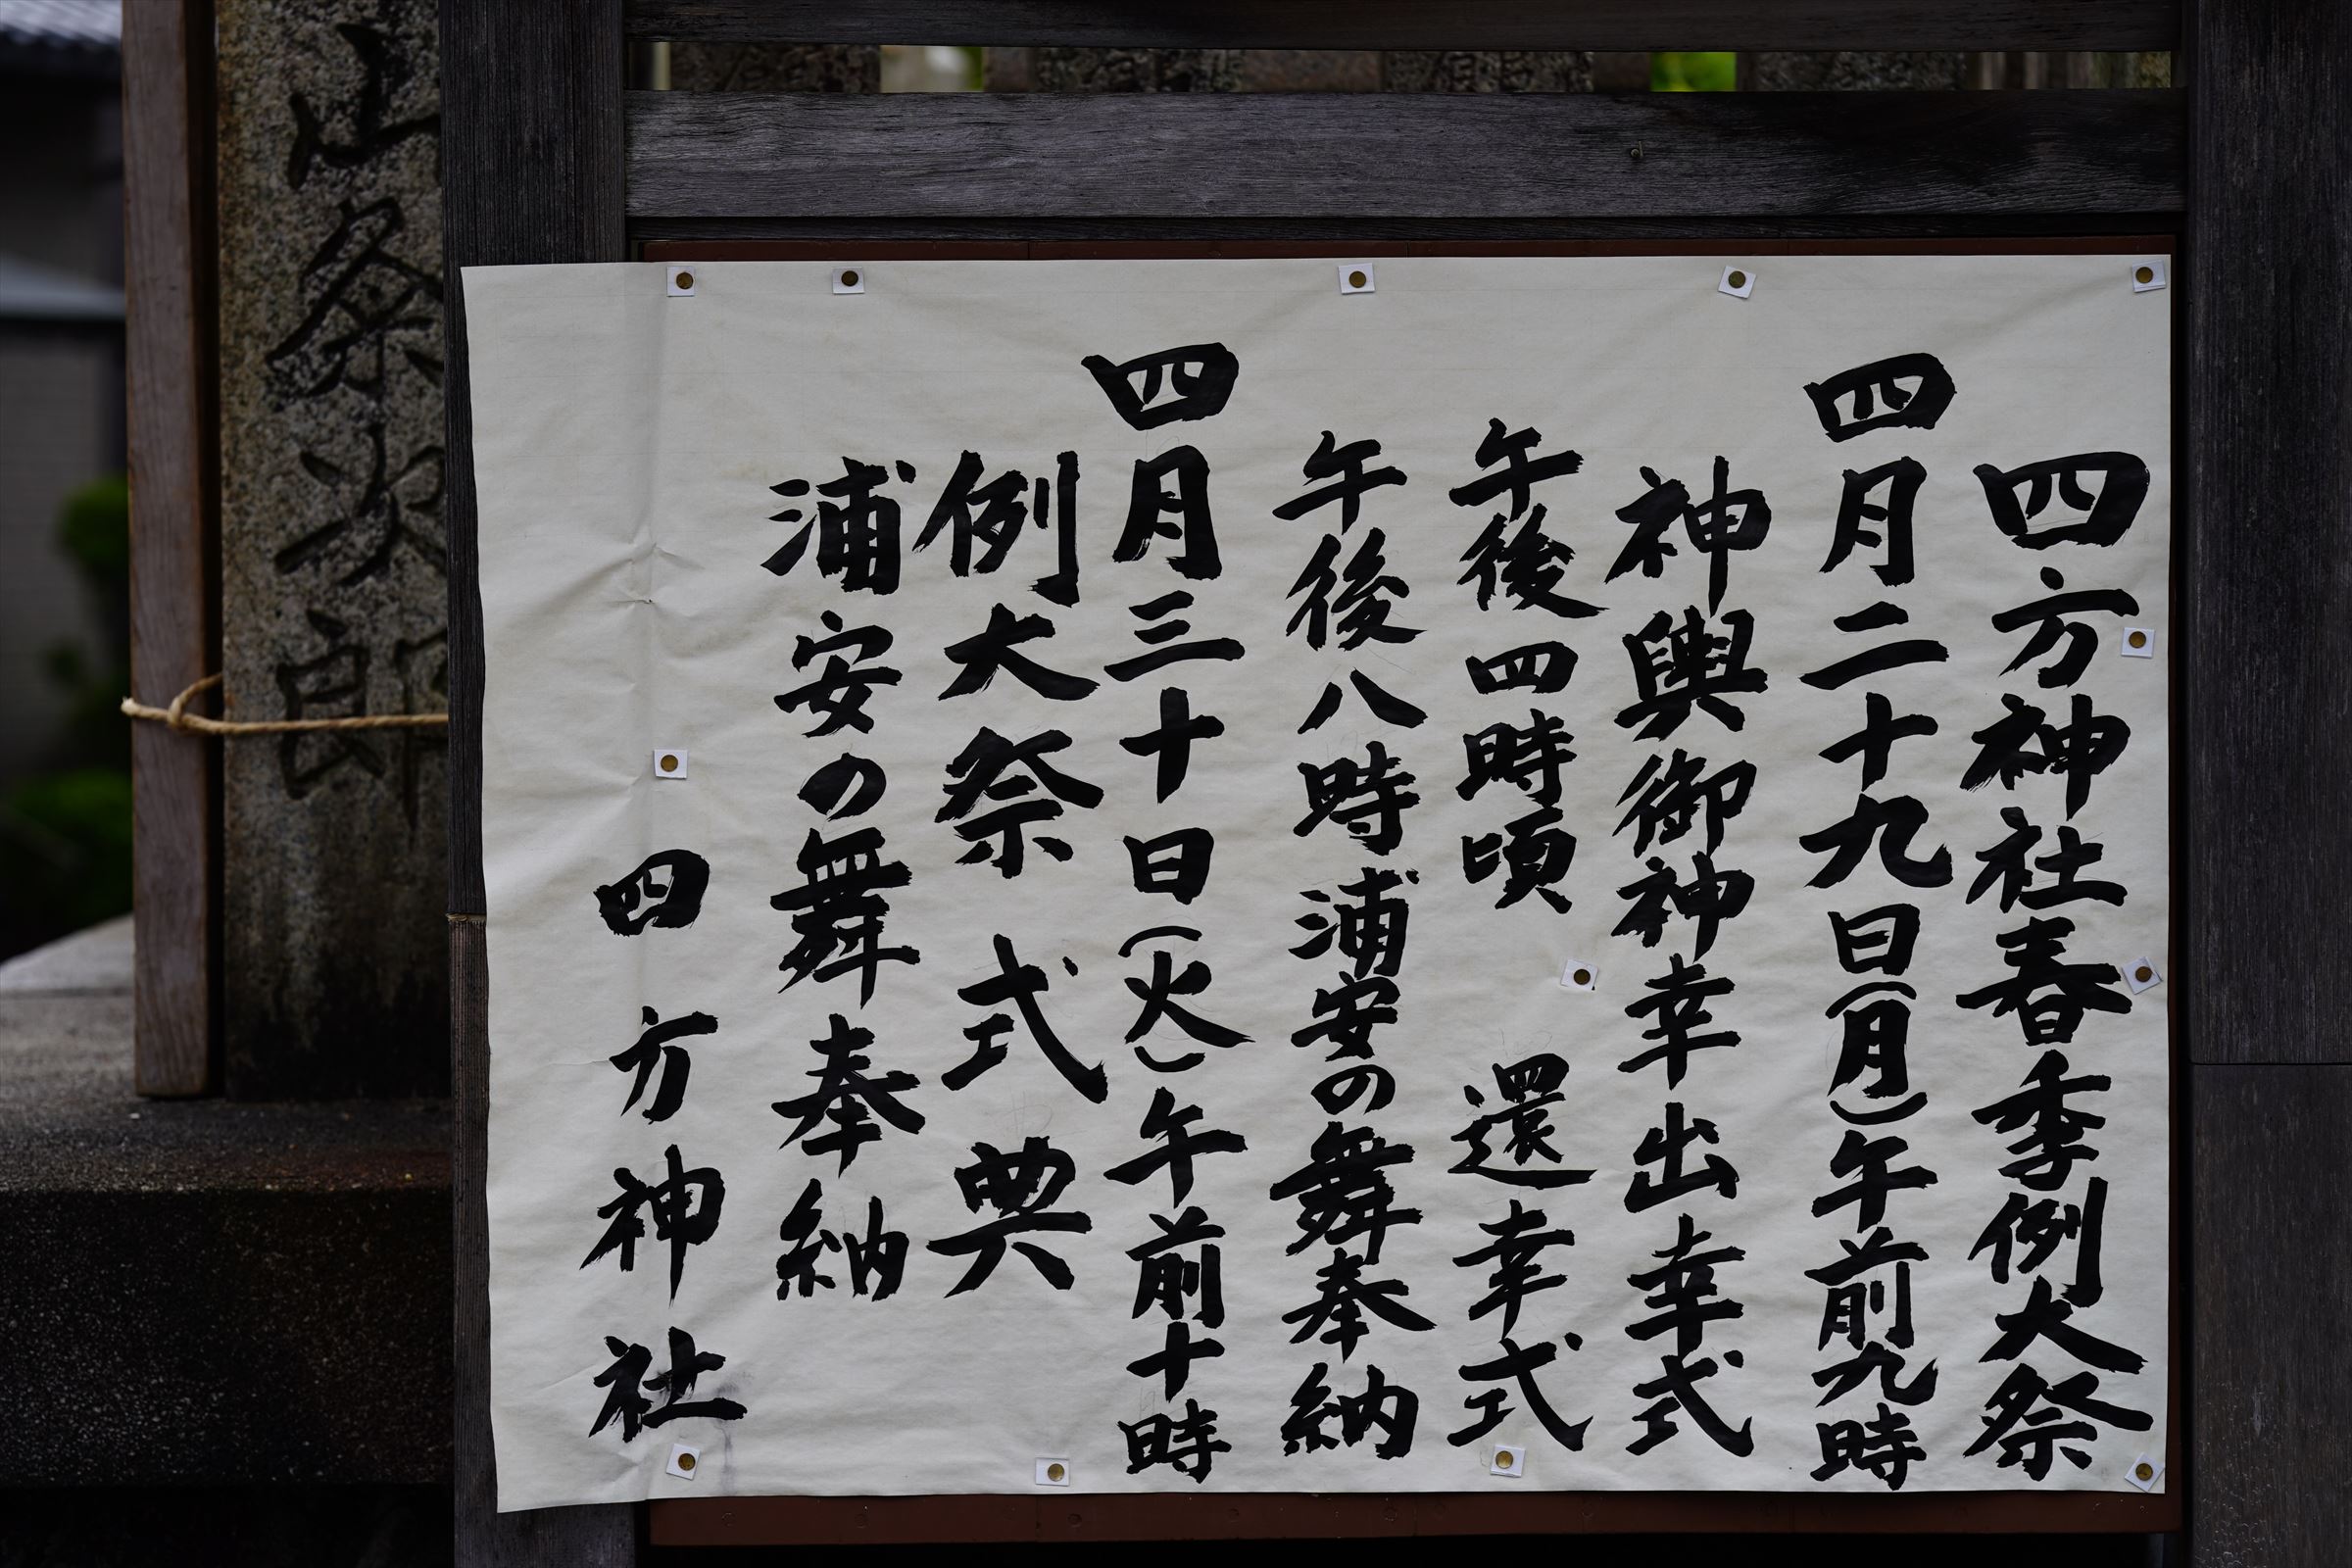 四方神社春季例大祭
四月二十九日(月)午前九時
神輿御神幸出幸式
午後四時頃 還幸式
午後八時浦安の舞奉納
四月三十日(火)午前十時
例大祭式典
浦安の舞奉納
四方神社
条次郎